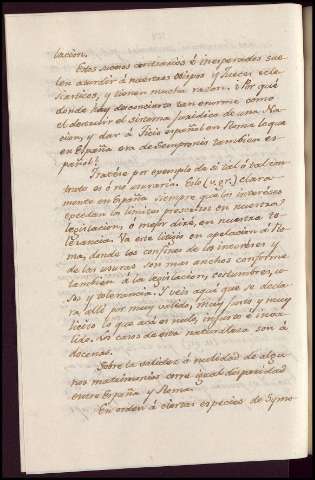 lacion.
Estos sucesos contrarios é inesperados sue-
len aturdir á nuestros obispos y Jueces ecle-
siasticos, y tienen mucha razon. ¿Por qué
donde hay desconcierto tan enorme como
el destruir el sistema juridico de una Na-
cion, y dar á Ticio español en Roma lo que
en España era de Sempronio tambien es-
pañol?
Tratese por exemplo de si tal ó tal con-
trato es ó no usurario. Eslo (v. gr.) clara-
mente en España siempre que los intereses
excedan los limites prescritos en nuestra
legislacion, ó mejor diré, en nuestra to-
lerancia. Va este litigio en apelacion á Ro-
ma, donde los confines de los intereses y
de las usuras son mas anchos conforme
tambien á la legislacion, costumbres, u-
sos y tolerancia. Y veis aqui que se decla-
ra allá por muy valido, muy justo y muy
licito lo que acá es nulo, injusto é inva-
lido. Los casos de esta naturaleza son á
docenas.
Sobre la validez ó nulidad de algu-
nos matrimonios corre igual disparidad
entre España y Roma.
En orden á ciertas especies de Symo-